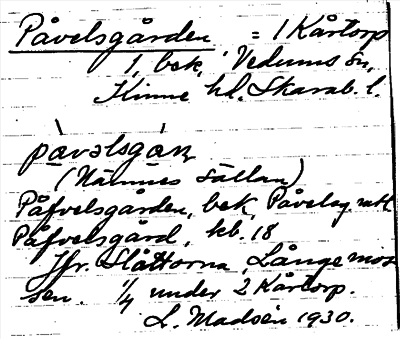 Påvelsgården = 1 Kårtorp
1, bek, i Vedums sn,
Kinne hd. Skarab. l.
pàvəlsgάn
(Nämnes sällan)
Påfvelsgården, bek, Påvelsg
Påfvelsgård, kb. 18
Jfr. Slåttorna, Långe mos
sen. 1/4 under 2 Kårtorp.
L. Madsén 1930.